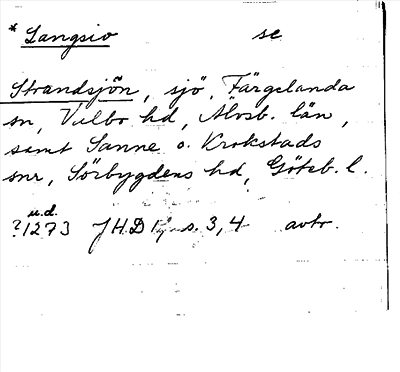 * Langsio se
Strandsjön, sjö, Färgelanda
sn, Valbo hd, Älvsb. län,
samt Sanne o. Krokstads
snr, Sörbygdens hd, Göteb. l.
u.d.
?1273 JHD 1 s. 3, 4 avtr.